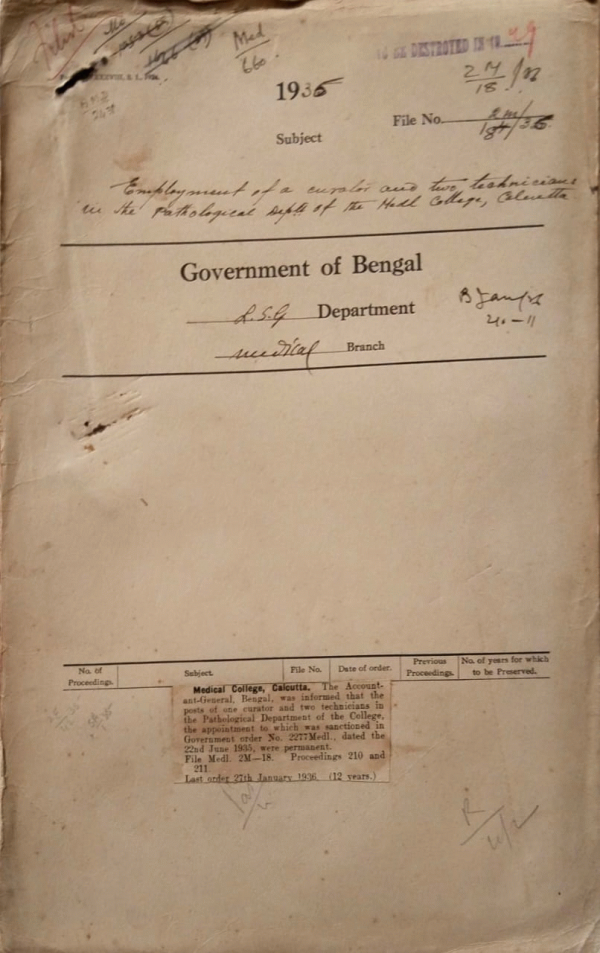 Med
660
TO BE DESTROYED IN 19 49
2M
18
1936
File No. 2M/18/36
Subject
Employment of a curator and two technicians
in the Pathological Deptt of the Medl College, Calcutta
Government of Bengal
L.S.G Department
Medical Branch
No. of Proceedings.
Subject.
File No.
Date of order.
Previous Proceedings.
No. of years for which to be Preserved.
Medical College, Calcutta. The Account-
ant-General, Bengal, was informed that the
posts of one curator and two technicians in
the Pathological Department of the College,
the appointment to which was sanctioned in
Government order No. 2277Medl., dated the
22nd June 1935, were permanent.
File Medl. 2M—18. Proceedings 210 and
211.
Last order 27th January 1936. (12 years.)